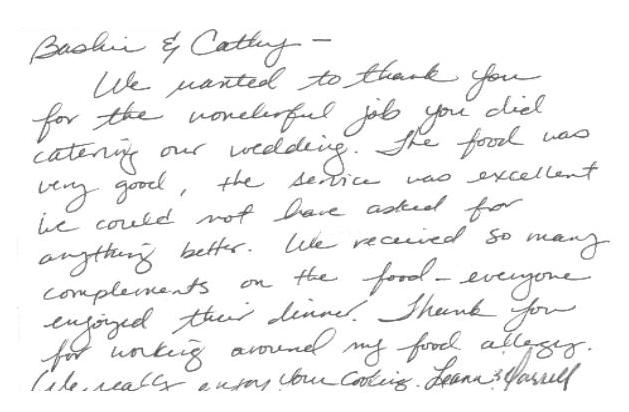 Bashir & Cathy –
We wanted to thank you
for the wonderful job you did
catering our wedding. The food was
very good, the service was excellent
we could not have asked for
anything better. We received so many
complements on the food – everyone
enjoyed their dinner. Thank you
for working around my food allergy.
We really enjoy your cooking. Leann & Darrell